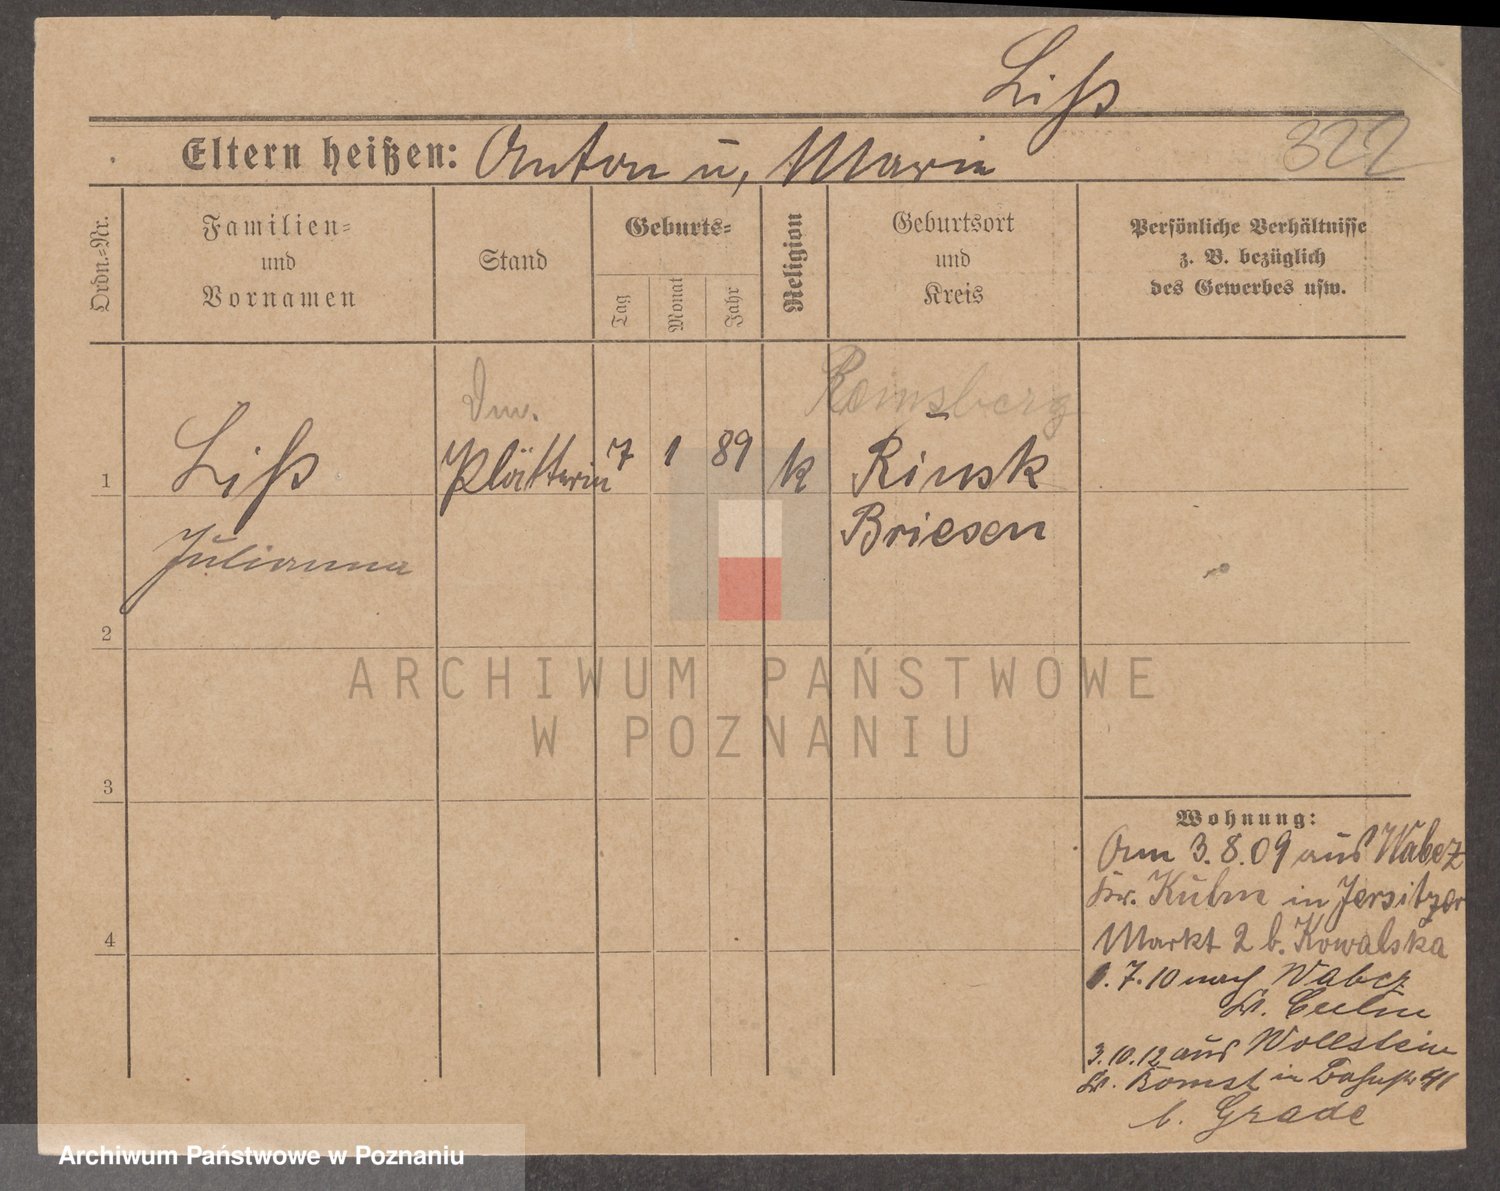 Liß
Eltern heißen: Anton u, Marie
322
Ordn.-Nr.
Familien-
und
Vornamen
Stand
Geburts-
Tag
Monat
Jahr
Religion
Geburtsort
und
Kreis
Persönliche Verhältnisse
z. B. bezüglich
des Gewerbes usw.
1
Liß
Julianna
Plätterin
7
1
89
k
Rinsk
Briesen
2
3
4
Wohnung:
Am 3.8.09 aus Wabcz
Kr. Kulm in Jersitzer
Markt 2 b. Kowalska
1.7.10 nach Wabcz
Kr. Culm
3.10.12 aus Wollstein
Kr. Bomst in Bahnstr 41
b. Grade
ARCHIWUM PAŃSTWOWE
W POZNANIU
Archiwum Państwowe w Poznaniu